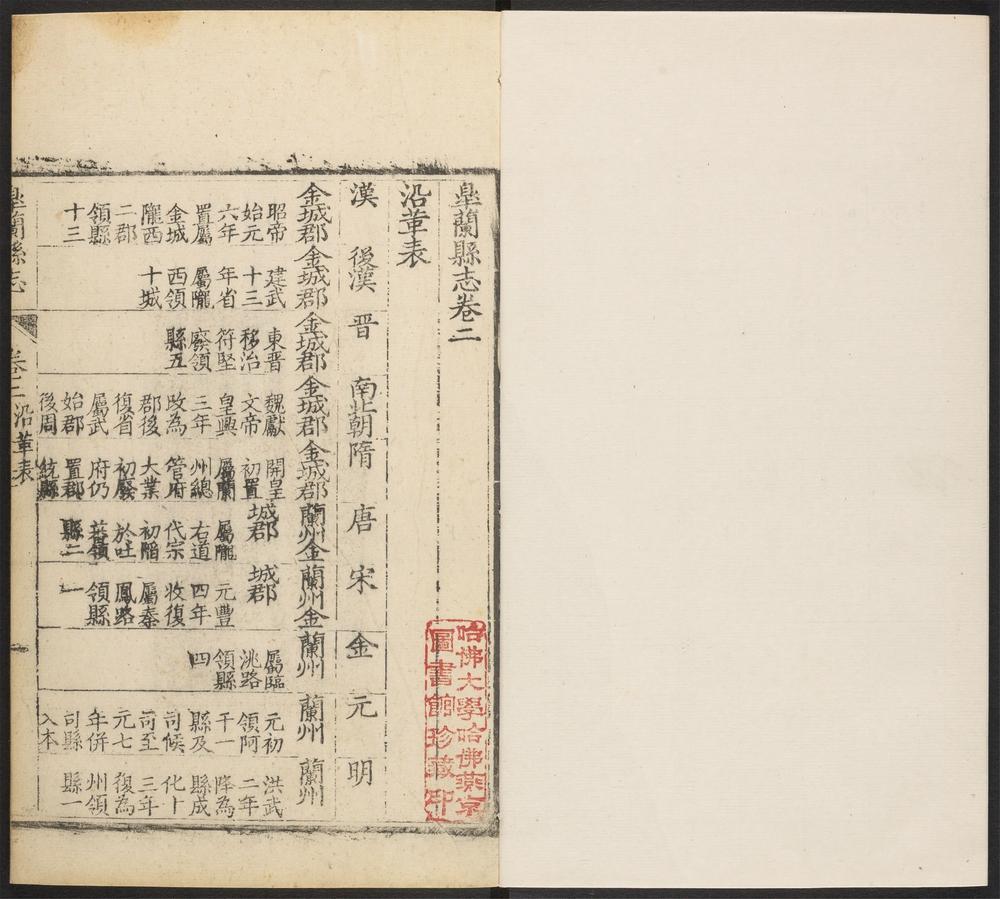 皐蘭縣志卷二
沿革表
漢
金城郡
昭帝
始元
六年
置屬
金城
隴西
二郡
領縣
十三
後漢
金城郡
建武
十三
年省
屬隴
西領
十城
晋
金城郡
東晋
移治
符堅
廢領
縣五
南北朝
金城郡
魏獻
文帝
皇興
三年
改為
郡後
復省
屬武
始郡
後周
隋
金城郡
開皇
初置
屬蘭
州總
管府
大業
初廢
府仍
置郡
統縣
唐
蘭州金
城郡
屬隴
右道
代宗
初陷
於吐
蕃領
縣二
宋
蘭州金
城郡
元豐
四年
收復
屬秦
鳳路
領縣
一
金
蘭州
屬臨
洮路
領縣
四
元
蘭州
元初
領阿
干一
縣及
司候
司至
元七
年併
司縣
入本
明
蘭州
洪武
二年
降為
縣成
化十
三年
復為
州領
縣一
皐蘭縣志
卷二沿革表
一
哈佛大學哈佛燕京
圖書館珍藏印